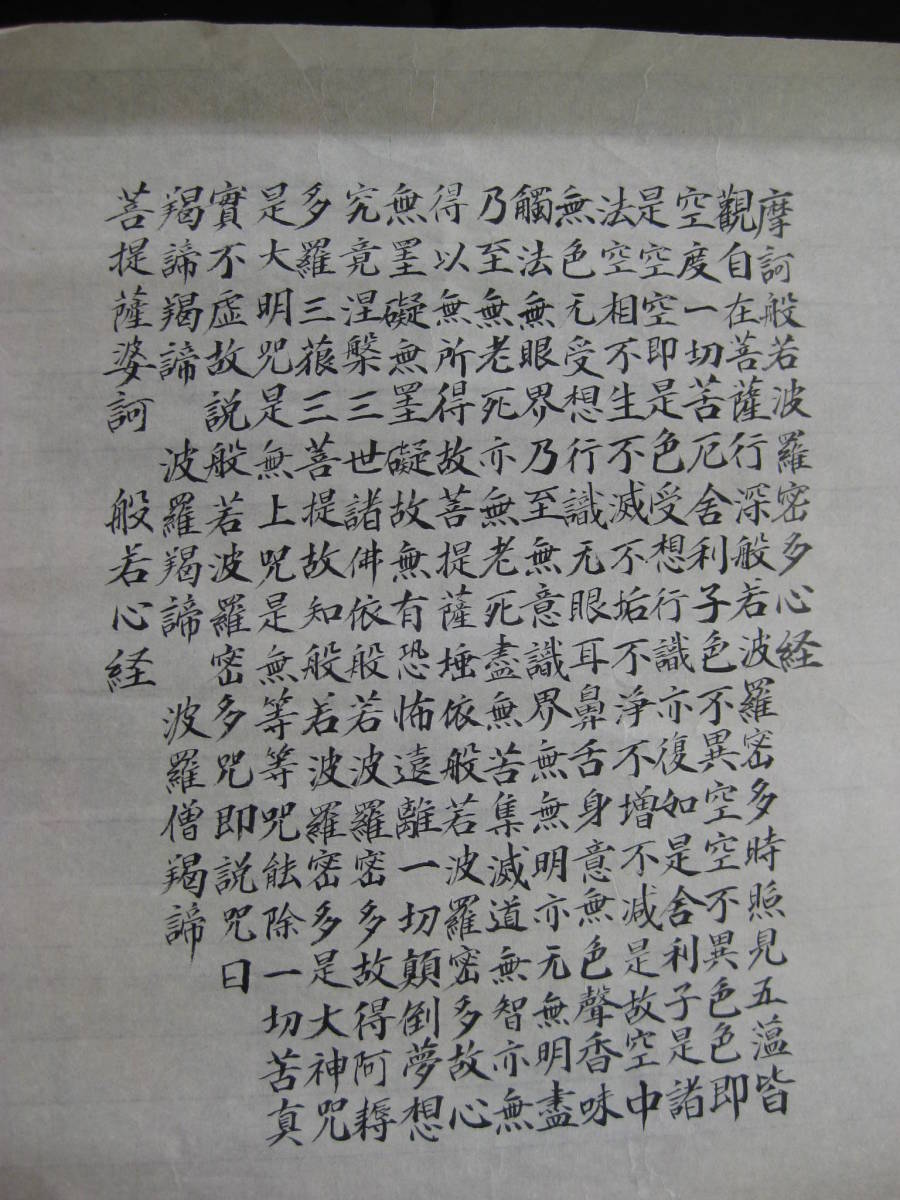 摩訶般若波羅密多心経
觀自在菩薩行深般若波羅密多時照見五薀皆
空度一切苦厄舍利子色不異空空不異色色即
是空空即是色受想行識亦復如是舍利子是諸
法空相不生不滅不垢不淨不增不减是故空中
無色无受想行識无眼耳鼻舌身意無色聲香味
觸法無眼界乃至無意識界無無明亦无無明盡
乃至無老死亦無老死盡無苦集滅道無智亦無
得以無所得故菩提薩埵依般若波羅密多故心
無罣礙無罣礙故無有恐怖遠離一切顛倒夢想
究竟涅槃三世諸佛依般若波羅密多故得阿耨
多羅三藐三菩提故知般若波羅密多是大神咒
是大明咒是無上咒是無等等咒能除一切苦真
實不虛故説般若波羅密多咒即説咒曰
羯諦羯諦 波羅羯諦 波羅僧羯諦
菩提薩婆訶 般若心経